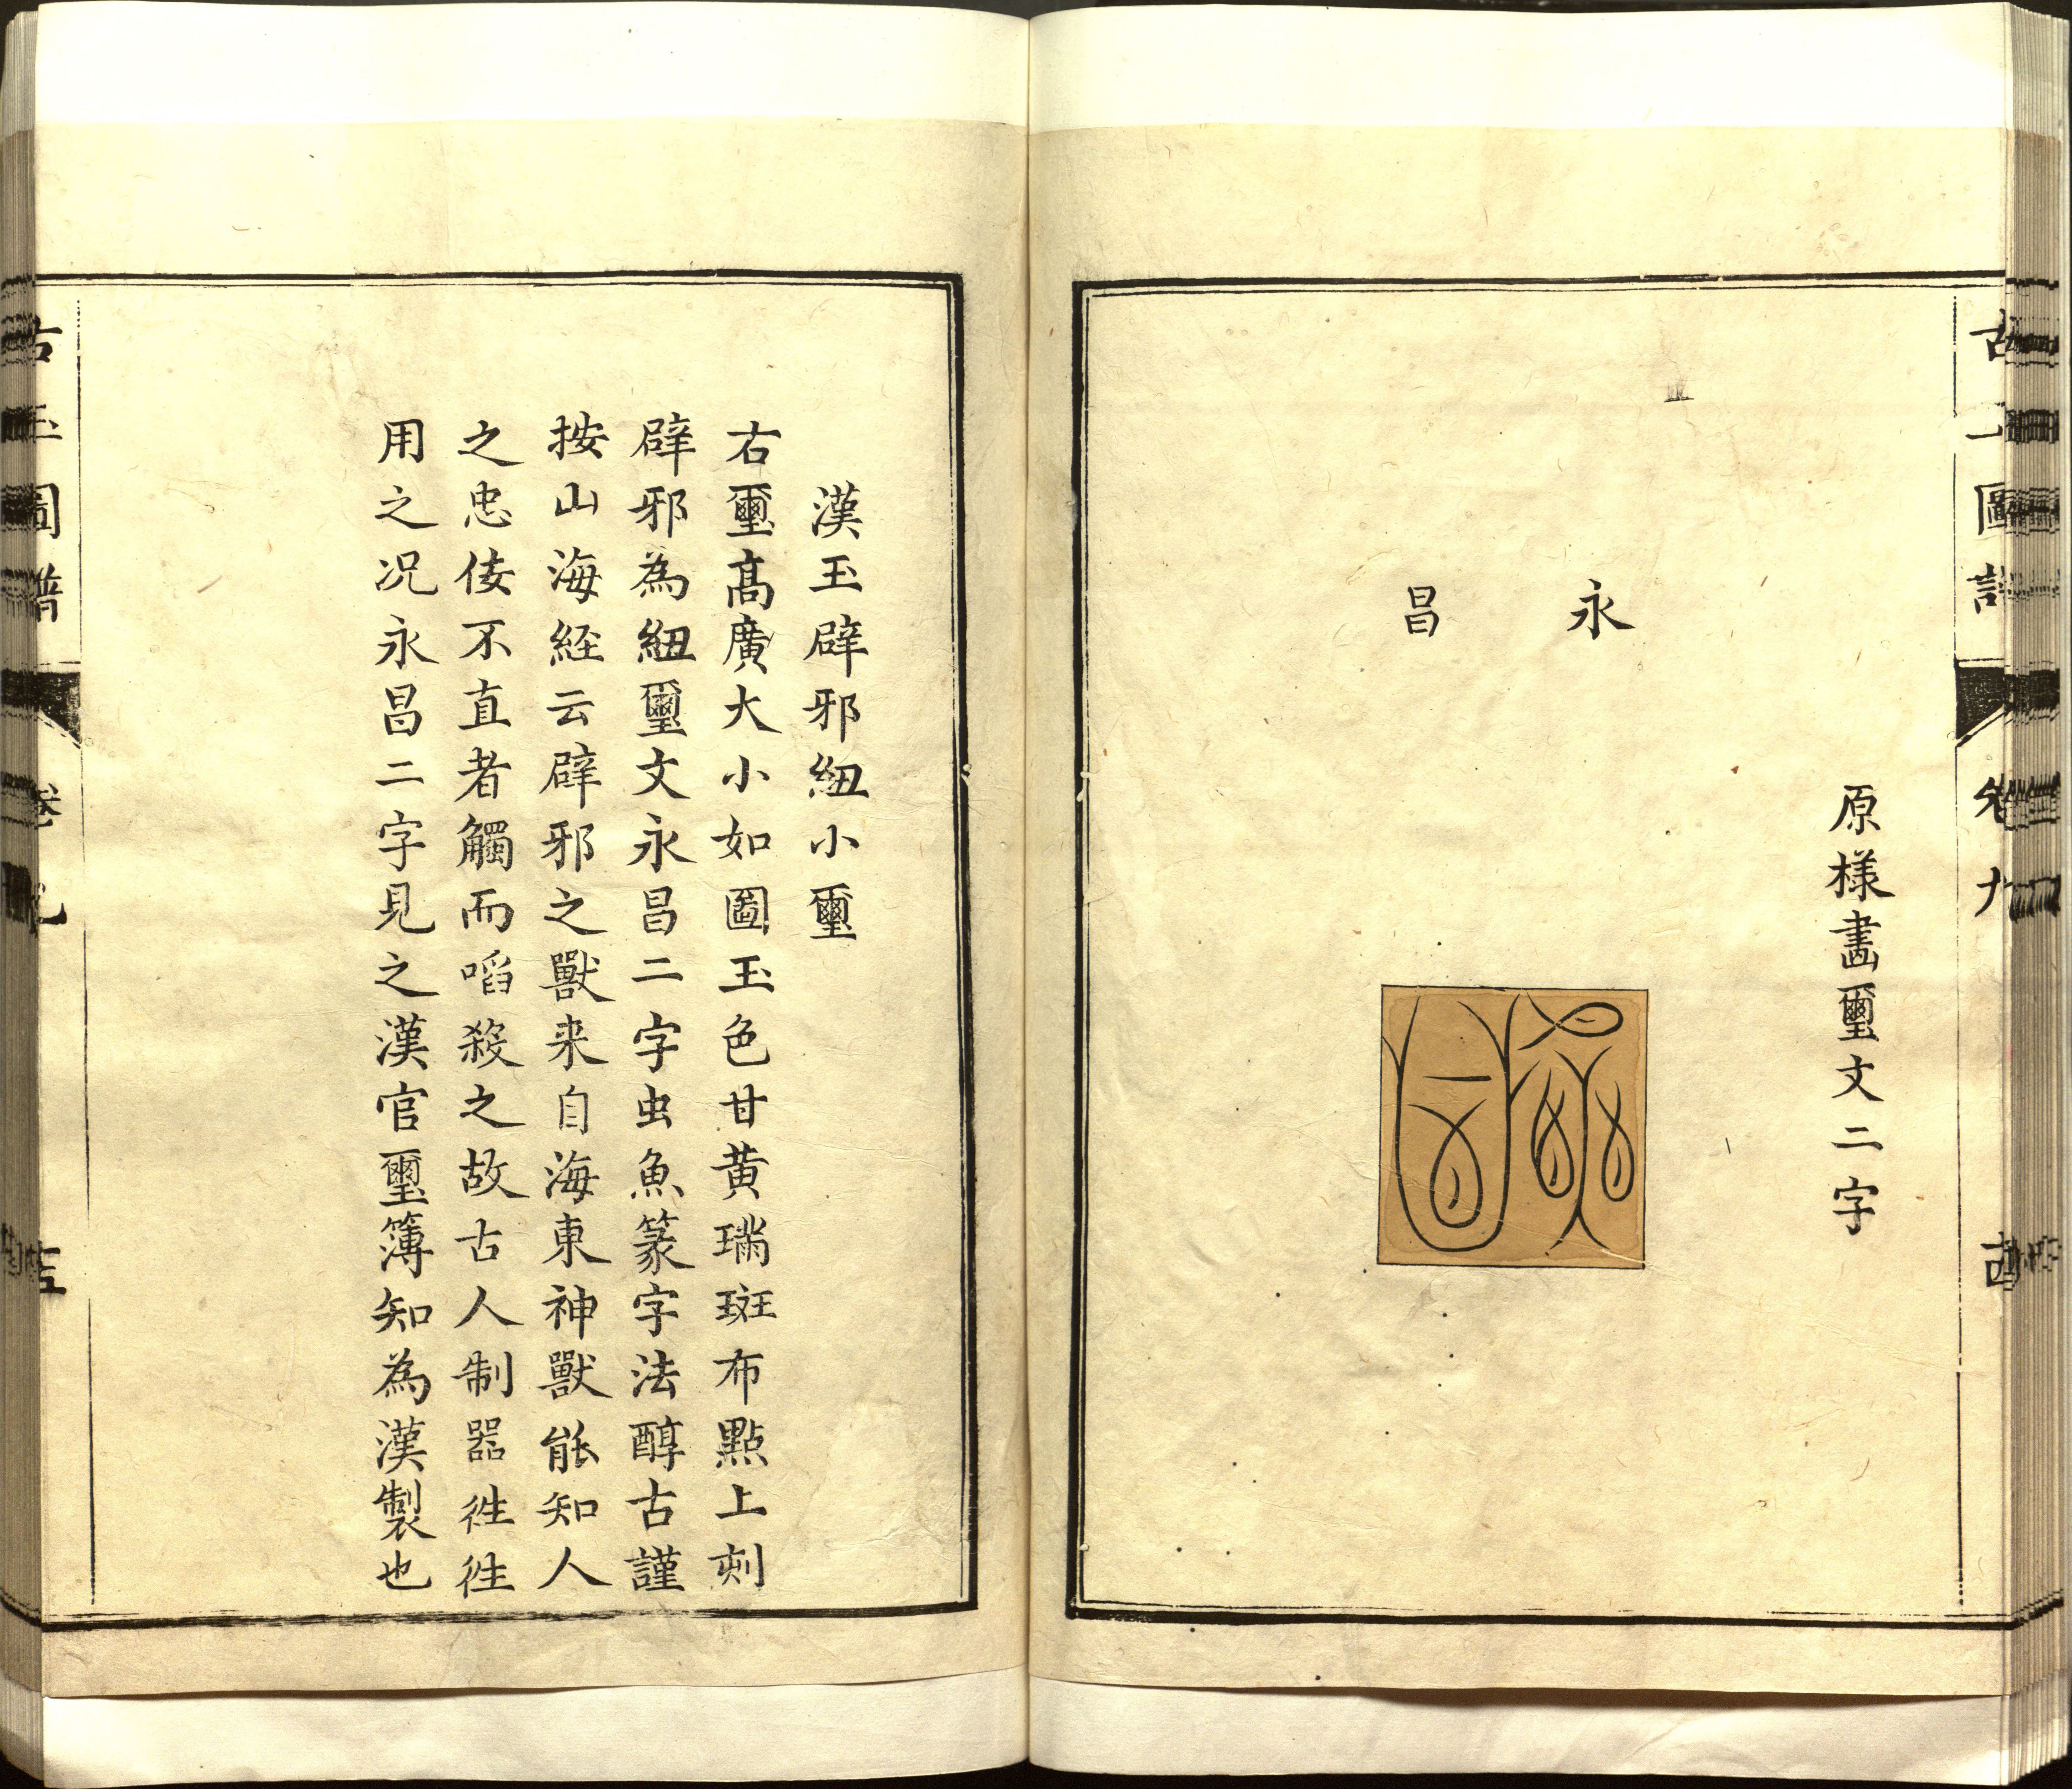 原様畵璽文二字
永
昌
漢玉辟邪紐小璽
右璽髙廣大小如圖玉色甘黄璊斑布點上刻
辟邪為紐璽文永昌二字虫魚篆字法醇古謹
按山海經云辟邪之獸来自海東神獸能知人
之忠倿不直者觸而啗殺之故古人制噐徃徃
用之况永昌二字見之漢官璽簿知為漢製也